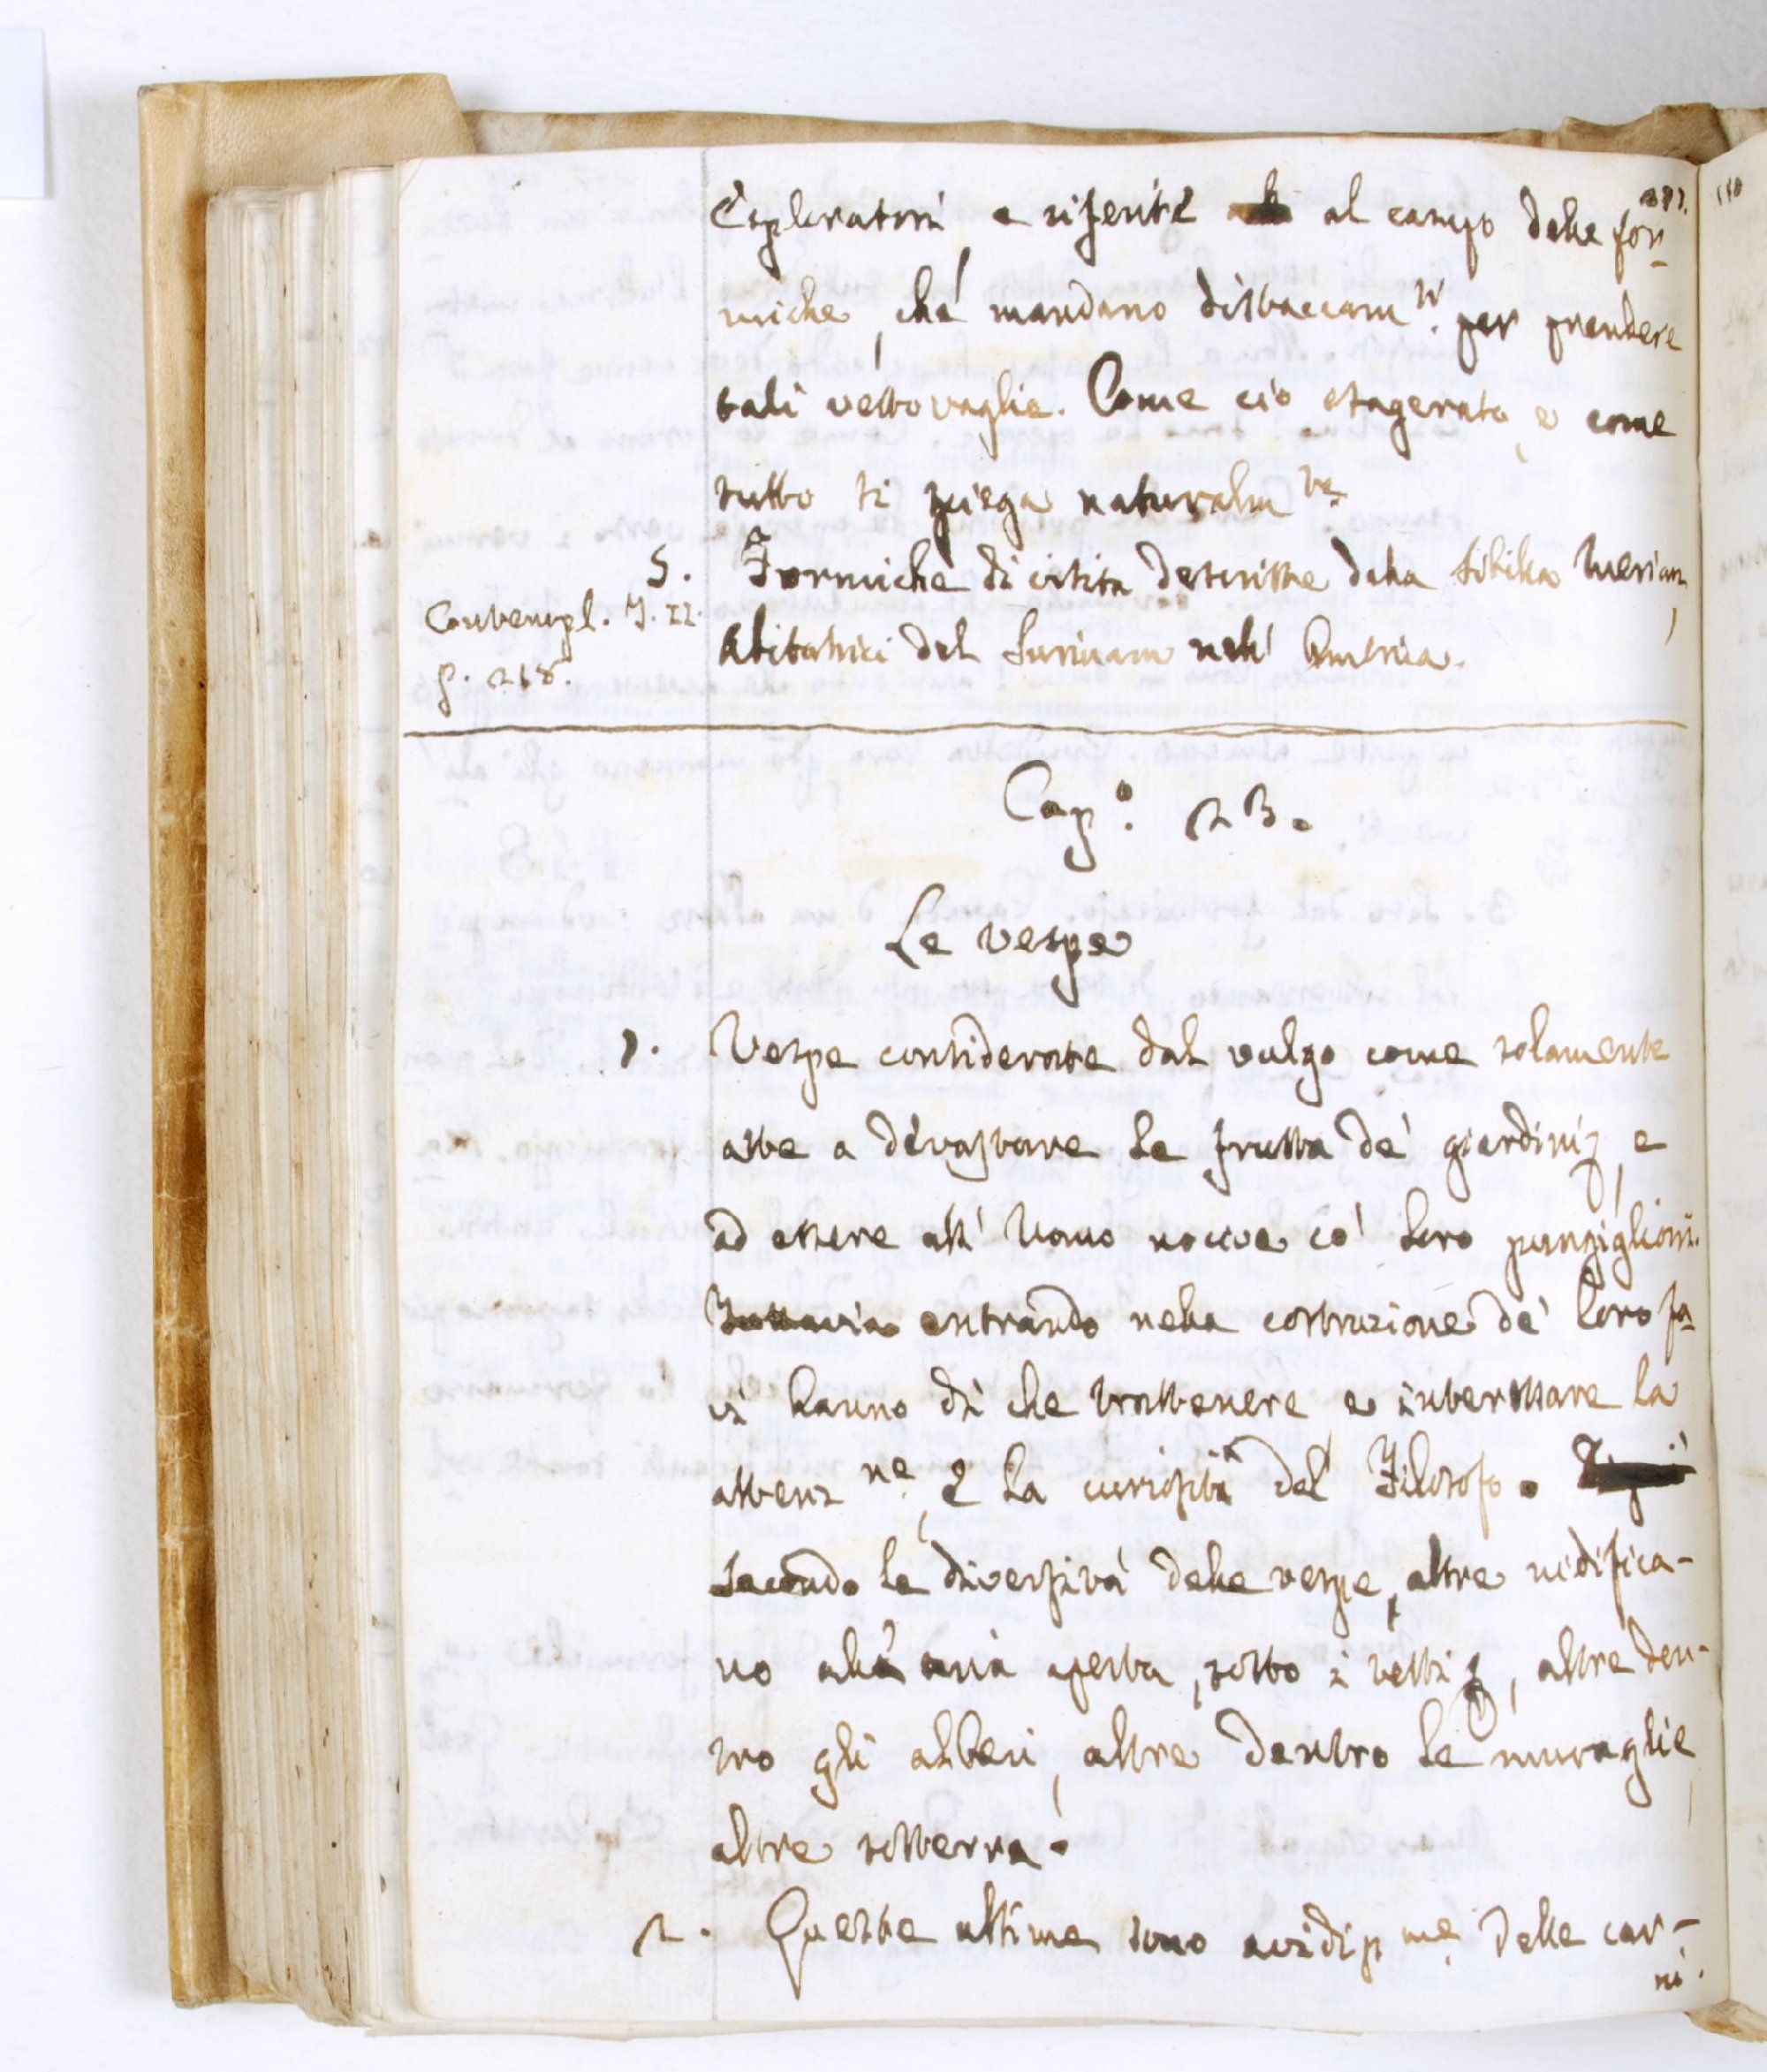 Esploratori e riferite al campo delle for-
miche, che mandano distaccam.ti per prendere
tali vettovaglie. Come ciò esagerato, e come
tutto si spiega naturalm.te
5. Formiche di visita descritte dalla Sibilla Merian,
Contempl. T. II.
p. 218.
abitatrici del Surinam nell' America.
Cap.o 23.
Le vespe
1. Vespe considerate dal vulgo come solamente
atte a devastare le frutta de' giardini, e
ad essere all' Uomo nocive co' loro pungiglioni.
Tuttavia entrando nella costruzione de' loro fa-
vi hanno di che trattenere e interessare la
attenz.ne, e la curiosità del Filosofo.
Secondo le diversità delle vespe, altre nidifica-
no all' aria aperta, sotto i tetti, altre den-
tro gli alberi, altre dentro le muraglie,
altre sotterra.
2. Queste ultime sono avidiss.me delle car-
ni.